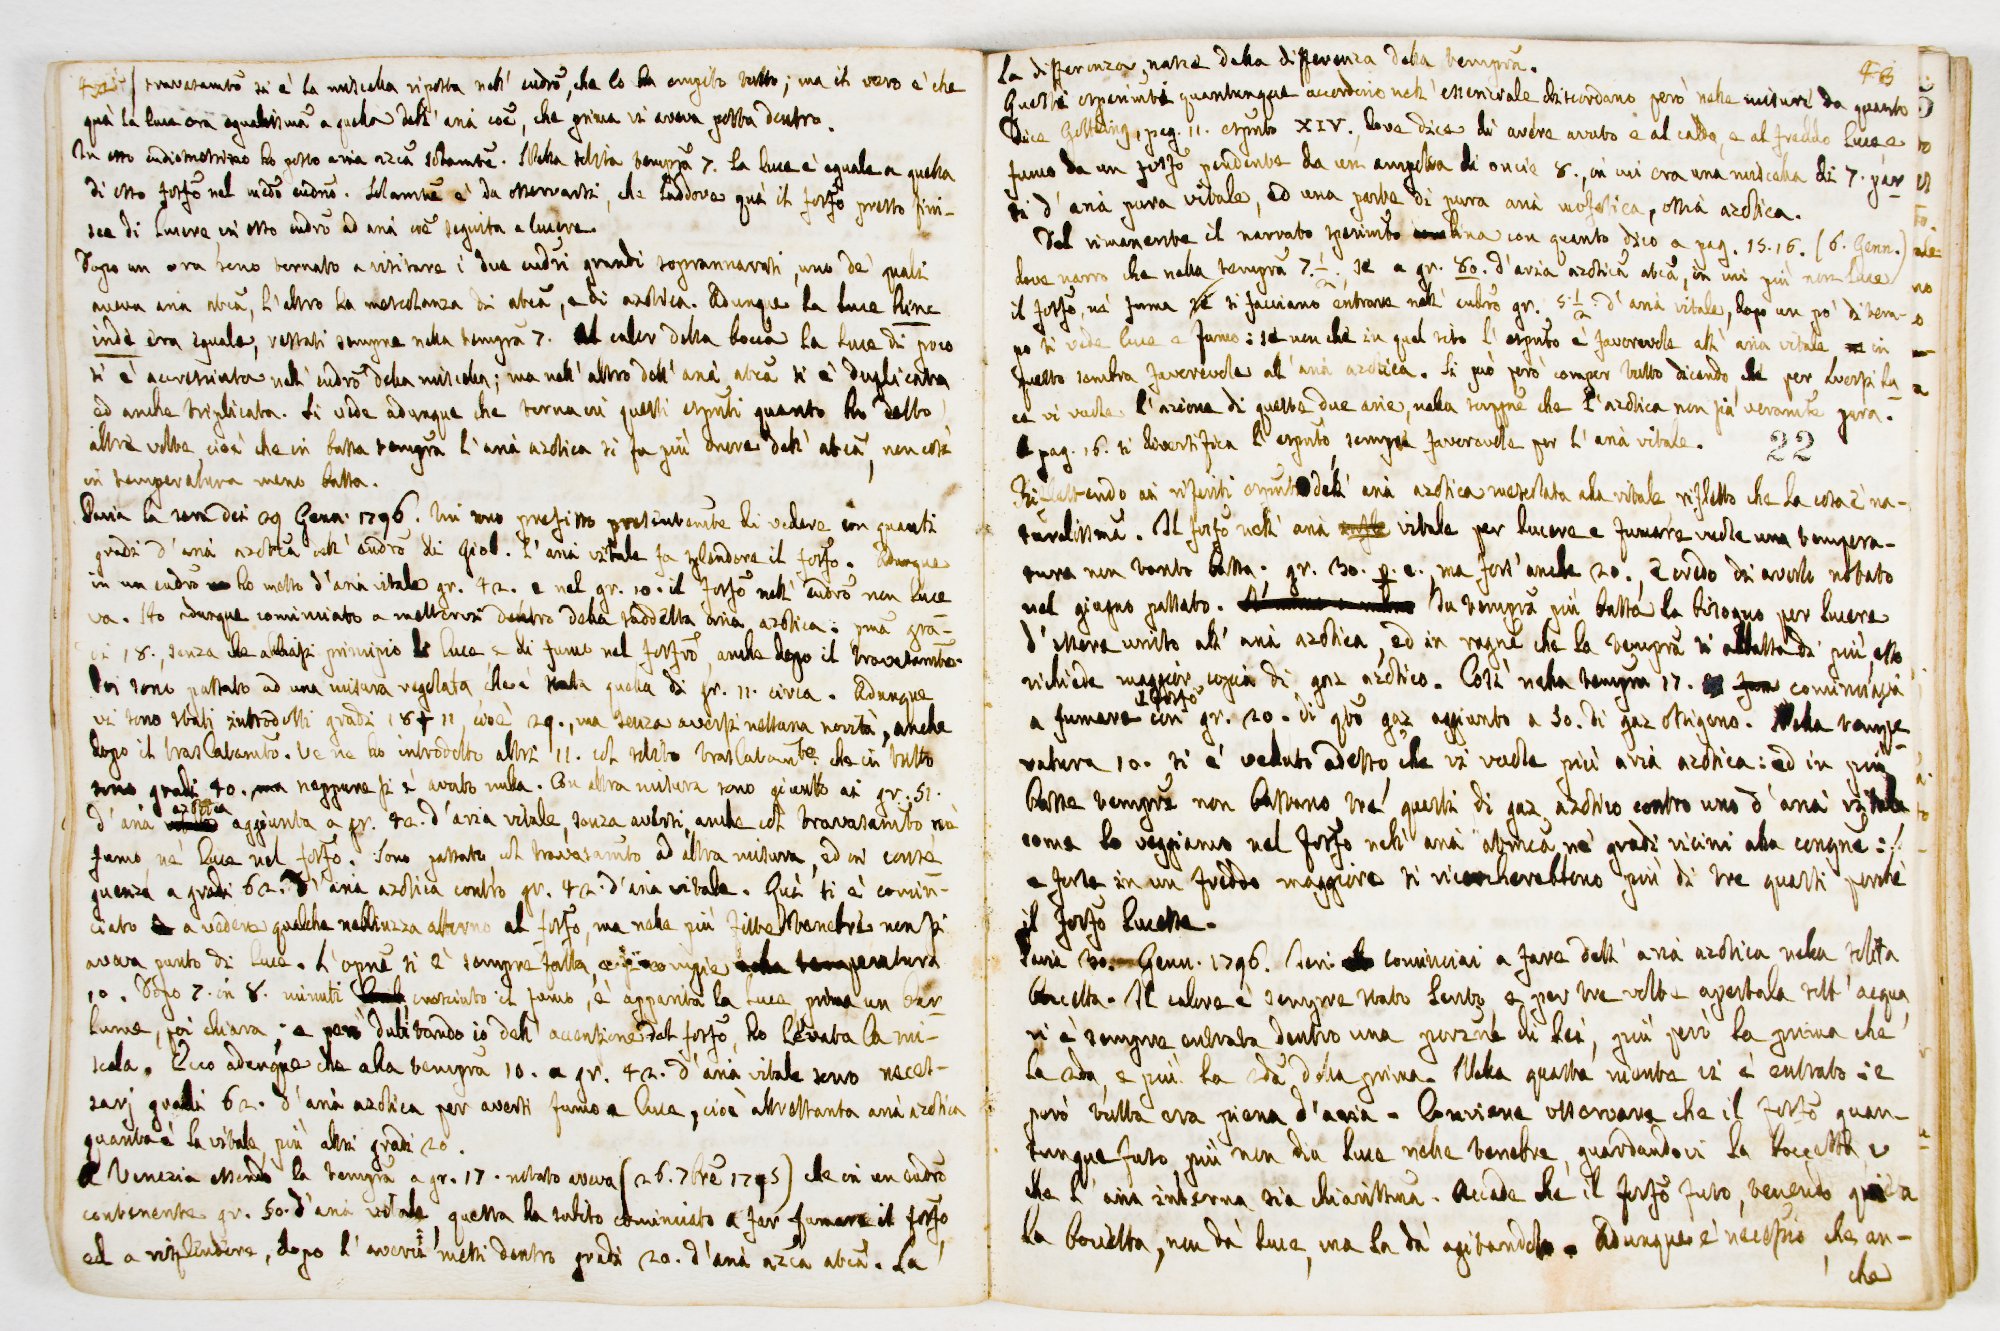 travasamto si è la miscella riposta nell' eudro, che lo ha empito tutto; ma il vero è che
quà la luce era egualissma a quella dell' aria coe, che prima vi aveva posta dentro.
In esso eudiometrino ho posto aria azca solamte. Nella solita tempra 7. la luce è eguale a quella
di esso fosfo nel medo eudro. Solamte è da osservarsi, che laddove quà il fosfo presto fini-
sce di lucere, in esso eudro ad aria coe seguita a lucere.
Dopo un ora sono tornato a visitare i due eudri grandi soprannomati, uno de' quali
aveva aria atca, l'altro la mescolanza di atca, e di azotica. Adunque la luce hinc
inde era eguale, restati sempre nella tempra 7. Al calor della bocca la luce di poco
si è accresciuta nell' eudro della miscella; ma nell' altro dell' aria atca si è duplicata
ed anche triplicata. Si vede adunque che torna in questi esprti quanto ho detto
altre volte cioè che in bassa tempra l' aria azotica si fa più onore dell' atca, non così
in temperatura meno bassa.
Pavia la sera dei 29 Genn. 1796. Mi sono prefisso presentemente di vedere con quanti
gradi d' aria azotica nell' eudro di Giob. l' aria vitale fa splendere il fosfo. Adunque
in un eudro ho messo d' aria vitale gr. 42. e nel gr. 10. il fosfo nell' eudro non luce
va. Ho adunque cominciato a mettervi dentro della suddetta aria azotica: pma gra-
di 18., senza che abbiasi principio di luce e di fumo nel fosfro, anche dopo il travasamto.
Poi sono passato ad una misura regolata che è stata quella di gr. 11. circa. Adunque
vi sono stati introdotti gradi 18 + 11, cioè 29., ma senza aversi nessuna novità, anche
dopo il traslatamto. Ve ne ho introdotto altri 11. col solito traslatamto. che in tutto
sono gradi 40. ma neppure si è avuto nulla. Con altra misura sono giunto ai gr. 51.
d' aria azotica aggiunta a gr. 42. d' aria vitale, senza aversi, anche col travasamto nè
fumo nè luce nel fosfo. Sono passato col travasamto ad altra misura, ed in conse
guenza a gradi 62. d' aria azotica contro gr. 42 d' aria vitale. Quà si è comin-
ciato a vedere qualche nebbiuzza attorno al fosfo, ma nele più fitte tenebre non si
aveva punto di luce. L' opne si è sempre fatta, e si compie nella temperatura
10. Dopo 7. in 8. minuti cresciuto il fumo, è apparita la luce prima un bar
lume, poi chiara; e però dubitando io dell' accensione del fosfo, ho levata la mi-
scela. Ecco adunque che alla tempra 10. a gr. 42. d' aria vitale sono neces-
sarj gradi 62. d' aria azotica per aversi fumo e luce, cioè altrettanta aria azotica
quanta è la vitale, più altri gradi 20.
A Venezia essendo la tempra a gr. 17. notato aveva (26. 7bre 1795) che in un eudro
contenente gr. 50. d' aria vitale, questa ha subito cominciato a far fumare il fosfo
ed a risplendere, dopo l' avervi messi dentro gradi 20. d' aria azca atca. La
43
la differenza nasce dalla differenza della tempra.
Questi esperimti quantunque accordino nell' essenziale discordano però nelle misure da quanto
dice Gottling, pag. 11. esprto XIV. dove dice di avere avuto e al caldo, e al freddo luce e
fumo da un fosfo pendente da un' ampolla di oncie 8., in cui era una miscella di 7. par
ti d' aria pura vitale, ed una parte di pura aria mofetica, ossia azotica.
Del rimanente il narrato sperimto combina con quanto dico a pag. 15. 16. (6. Genn.)
dove narro che nella tempra 7. 1/2. se a gr. 80. d'aria azotica atca, in cui più non luce
il fosfo, nè fuma si facciano entrare nell' eudro gr. 5 1/2 d' aria vitale, dopo un po' di tem-
po si vede luce e fumo: se non che in quel sito l' esprto è favorevole all' aria vitale in
questo sembra favorevole all' aria azotica. Si può però compor tutto dicendo che per aversi lu
ce vi vuole l' azione di queste due arie, nella suppne che l' azotica non sia veramte pura.
A pag. 16. si diversifica l' esprto, sempre favorevole per l' aria vitale.
22
Riflettendo ai riferiti esprmti dell' aria azotica mescolata alla vitale rifletto che la cosa è na-
turalissma. Il fosfo nell' aria vitale per lucere e fumare vuole una tempera-
tura non tanto bassa, gr. 30. p. e., ma fors' anche 20., e credo di averlo notato
nel giugno passato. In tempra più bassa ha bisogno per lucere
d' essere unito all' aria azotica, ed in ragne che la tempra si abbassa di più, esso
richiede maggior copia di gaz azotico. Così nella tempra 17. cominciava
il fosfo
a fumare con gr. 20. di qto gaz aggiunto a 50. di gaz ossigeno. Nella tempe
ratura 10. si è veduto adesso che vi vuole più aria azotica: ed in più
basse tempre non bastano tre quarti di gaz azotico contro uno d' aria vitale
come lo veggiamo nel fosfo nell' aria atmica ne' gradi vicini alla congne:
e forse in un freddo maggiore si ricercherebbono più di tre quarti perchè
il fosfo lucesse.
Pavia 30. Genn. 1796. Ieri cominciai a fare dell' aria azotica nella solita
boccetta. Il calore è sempre stato lento, e per tre volte apertala sott' acqua
vi è sempre entrata dentro una porzne di lei, più però la prima che
la 2da, e più la 2da della prima. Nella quarta niente vi è entrato: e
però tutta era piena d'aria. Conviene osservare che il fosfo quan-
tunque fuso più non dia luce nelle tenebre, guardandovi la boccetta, e
che l' aria interna sia chiarissma. Accade che il fosfo fuso, tenendo quieta
la boccetta, non dà luce, ma la dà agitandola. Adunque è necessrio che an-
che